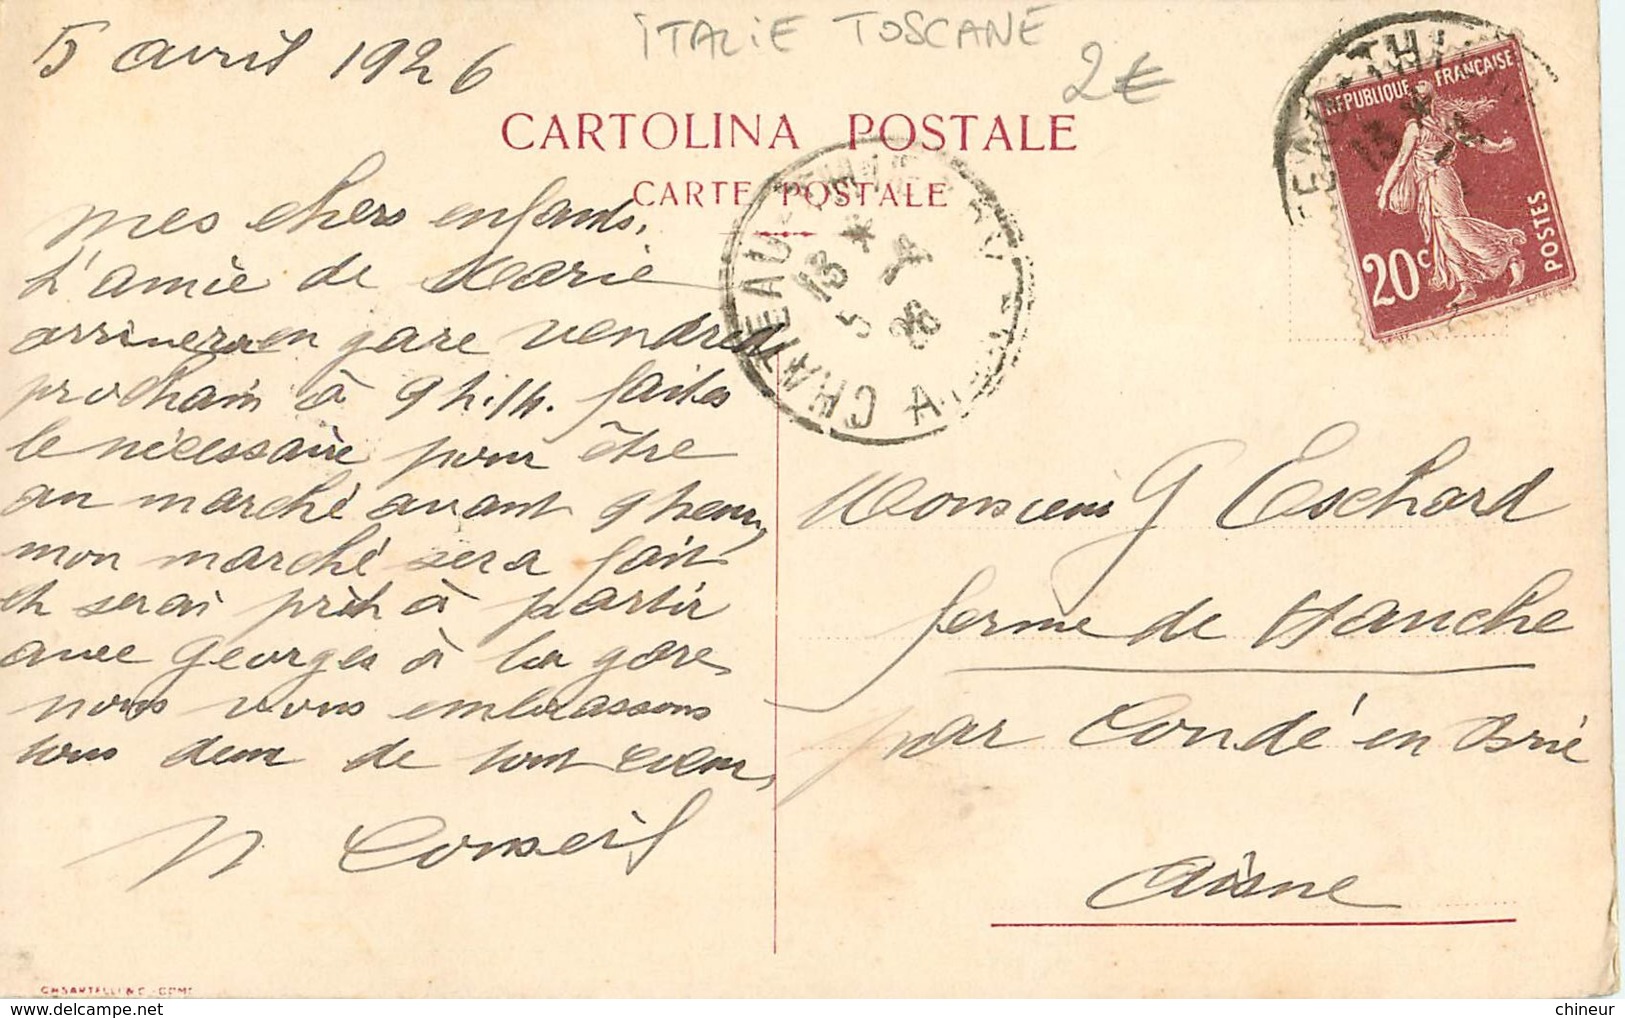 ITALIE TOSCANE
2€
5 avril 1926
CARTOLINA POSTALE
CARTE POSTALE
mes chers enfants,
L'amie de Marie
arrivera en gare vendredi
prochain à 9 h. 14. faites
le nécessaire pour être
au marché avant 9 heures,
mon marché sera fait
et serai prêt à partir
avec Georges à la gare,
nous vous embrassons
tous deux de tout coeur,
Conseil
REPUBLIQUE FRANÇAISE
20c
POSTES
CHATEAU-THIERRY
AISNE
13 * 5
5 26
Monsieur G Eschard
ferme de Hanche
par Condé en Brie
Aisne
chineur